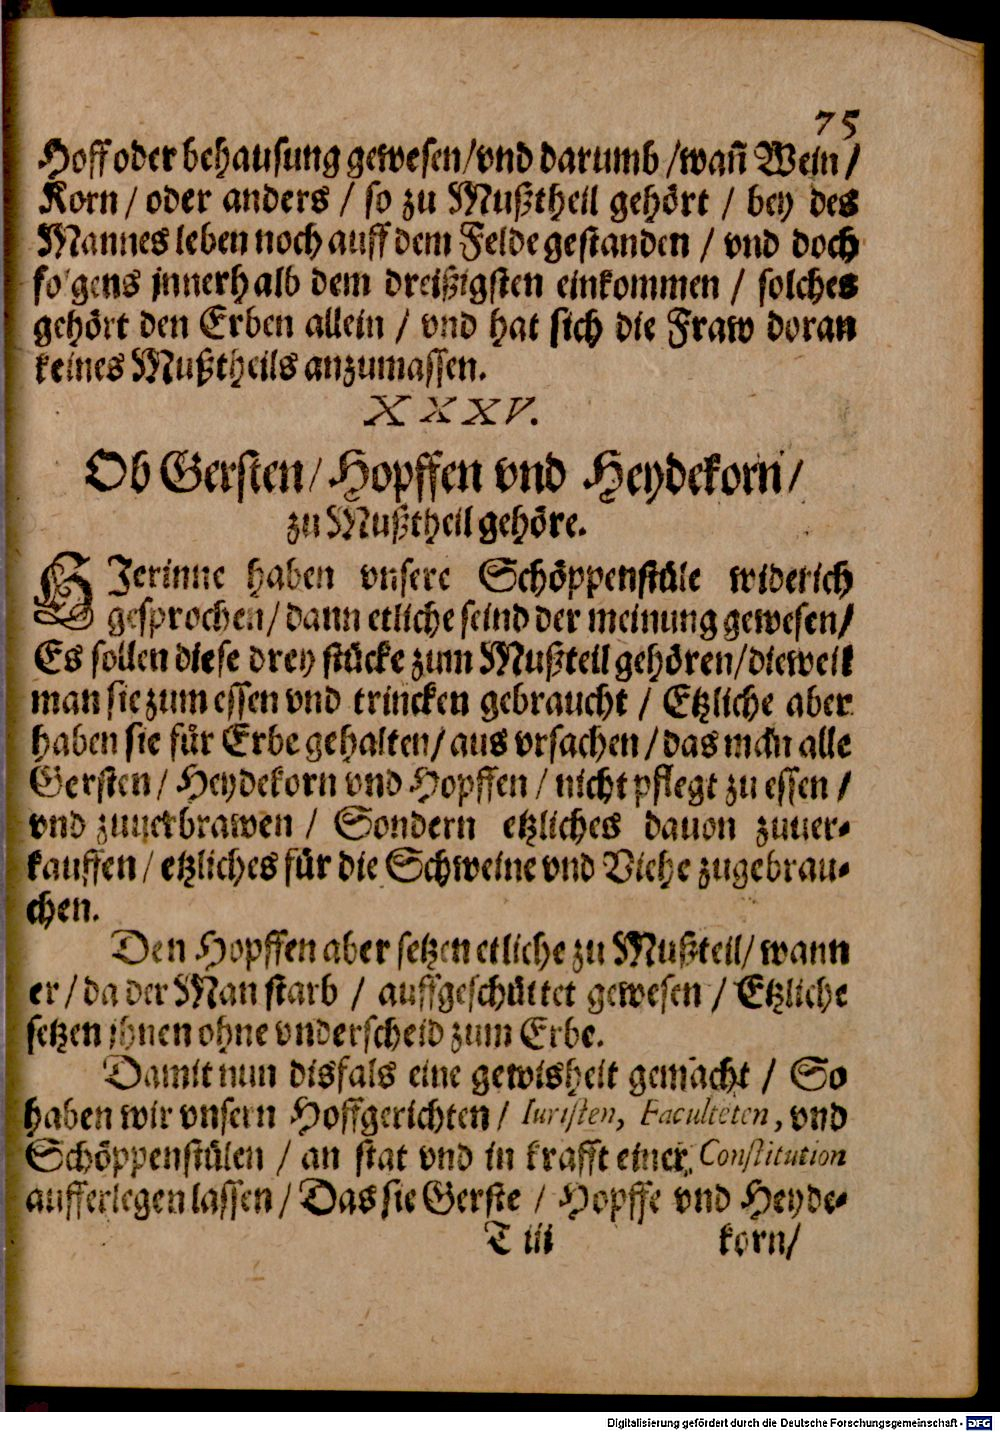 75
Hoff oder behausung gewesen/vnd darumb /wañ Wein /
Korn / oder anders / so zu Mußtheil gehört / bey des
Mannes leben noch auff dem Felde gestanden / vnd doch
folgens jnnerhalb dem dreißigsten einkommen / solches
gehört den Erben allein / vnd hat sich die Fraw doran
keines Mußtheils anzumassen.
XXXV.
Ob Gersten/ Hopffen vnd Heydekorn/
zu Mußtheil gehöre.
HJerinne haben vnsere Schöppenstüle widerich
gesprochen/ dann etliche seind der meinung gewesen/
Es sollen diese drey stücke zum Mußteil gehören/dieweil
man sie zum essen vnd trincken gebraucht / Etzliche aber
haben sie für Erbe gehalten/ aus vrsachen / das man alle
Gersten / Heydekorn vnd Hopffen / nicht pflegt zu essen /
vnd zuuerbrawen / Sondern etzliches dauon zuuer-
kauffen / etzliches für die Schweine vnd Viehe zugebrau-
chen.
Den Hopffen aber setzen etliche zu Mußteil/ wann
er / da der Man starb / auffgeschüttet gewesen / Etzliche
setzen jhnen ohne vnderscheid zum Erbe.
Damit nun disfals eine gewisheit gemacht / So
haben wir vnsern Hoffgerichten / Iuristen, Faculteten, vnd
Schöppenstülen / an stat vnd in krafft einer Constitution
aufferlegen lassen / Das sie Gerste / Hopffe vnd Heyde-
T iii korn/
Digitalisierung gefördert durch die Deutsche Forschungsgemeinschaft - DFG